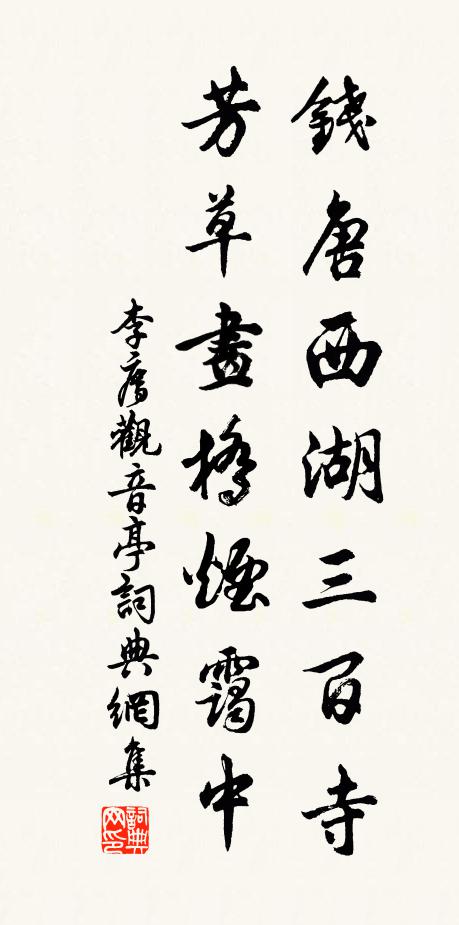 錢唐西湖三百寺
芳草畫橋煙靄中
李廌觀音亭詞典網集
詞典网印